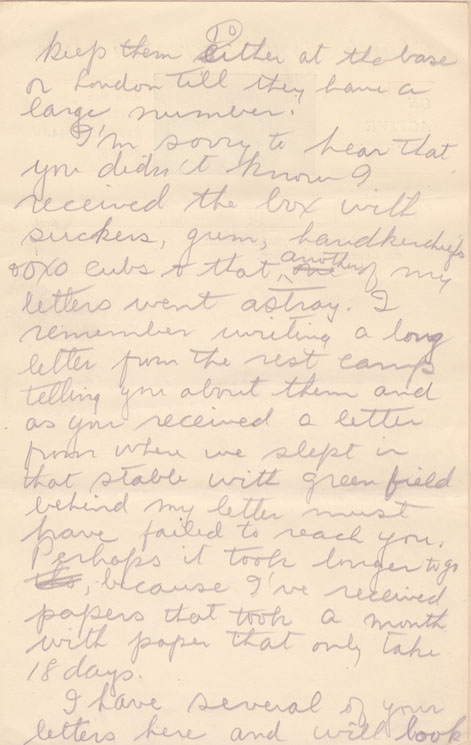 10
keep them either at the base
or London till they have a
large number.
I'm sorry to hear that
you didn't know I
received the box with
suckers, gum, handkerchiefs
oxo cubs & that, another of my
letters went astray. I
remember writing a long
letter from the rest camp
telling you about them and
as you received a letter
from where we slept in
that stable with green field
behind my letter must
have failed to reach you.
Perhaps it took longer to go
, because I've received
papers that took a month
with paper that only take
18 days.
I have several of your
letters here and will look